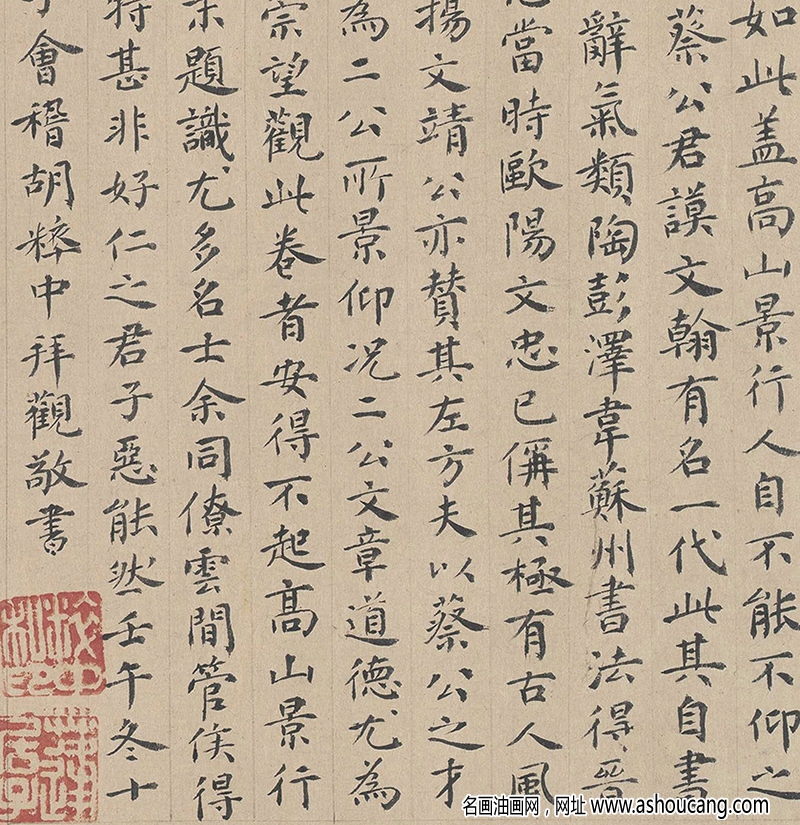 如此盖高山景行人自不能不仰之
蔡公君謨文翰有名一代此其自書
辭氣類陶彭澤韋蘇州書法得晉
當時歐陽文忠已偁其極有古人風
揚文靖公亦贊其左方夫以蔡公之才
為二公所景仰况二公文章道德尤為
宗望觀此卷者安得不起高山景行
末題識尤多名士余同僚雲間管侯得
特甚非好仁之君子惡能然壬午冬十
會稽胡粹中拜觀敬書
名画油画网，网址 www.ashoucang.com